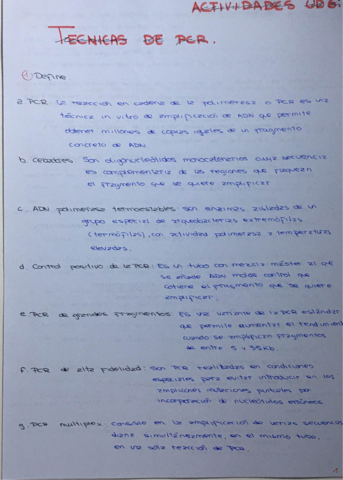 ACTIVIDADES UD6:
TECNICAS DE PCR.
① Define
a. PCR: La reacción en cadena de la polimerasa o PCR es una
técnica in vitro de amplificación de ADN que permite
obtener millones de copias iguales de un fragmento
concreto de ADN
b. Cebadores: Son oligonucleótidos monocatenarios cuya secuencia
es complementaria de las regiones que flanquean
el fragmento que se quiere amplificar
c. ADN polimerasa termoestables: son enzimas aisladas de un
grupo especial de arqueobacterias extremófilas
(termófilas), con actividad polimerasa a temperaturas
elevadas.
d. Control positivo de la PCR: Es un tubo con mezcla máster al que
se añade ADN molde control que
contiene el fragmento que se quiere
amplificar.
e. PCR de grandes fragmentos: Es una variante de la PCR estándar
que permite aumentar el rendimiento
cuando se amplifican fragmentos
de entre 5 y 35Kb.
f. PCR de alta fidelidad: son PCR realizadas en condiciones
especiales para evitar introducir en los
amplicones mutaciones puntuales por
incorporación de nucleótidos erróneos
g. PCR múltiplex: consiste en la amplificación de varias secuencias
diana simultáneamente, en el mismo tubo,
en una sola reacción de PCR.
1